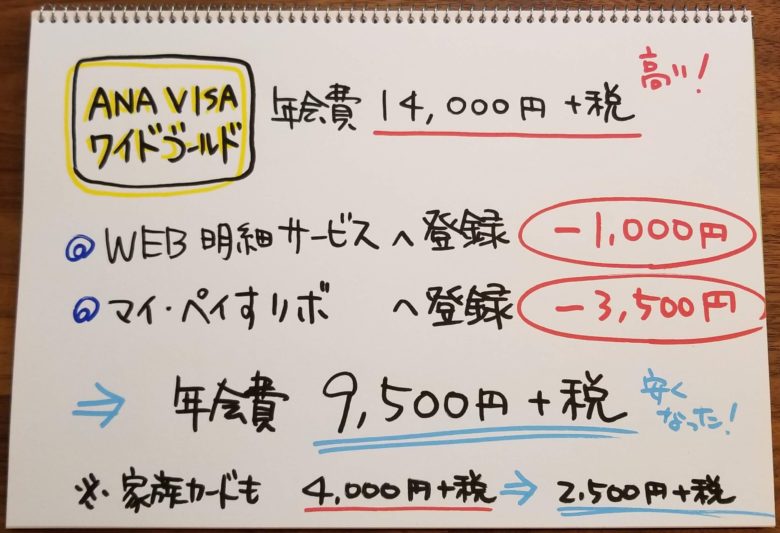 ANA VISA
ワイドゴールド
年会費 14,000円+税
高い!
@ WEB 明細サービスへ登録 -1,000円
@ マイ・ペイすリボ へ登録 -3,500円
⇒ 年会費 9,500円+税
安く
なった!
※ 家族カードも 4,000円+税 ⇒ 2,500円+税